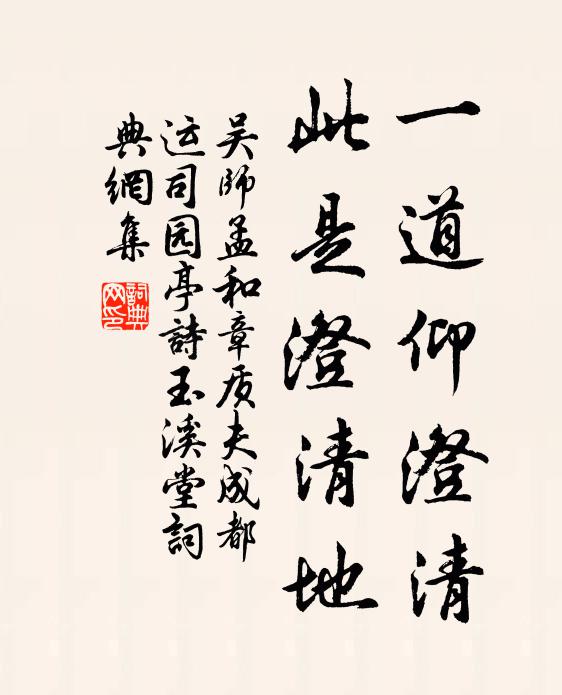 一道仰澄清
此是澄清地
吴師孟和章质夫成都
运司园亭詩玉溪堂詞
典網集
詞典網印